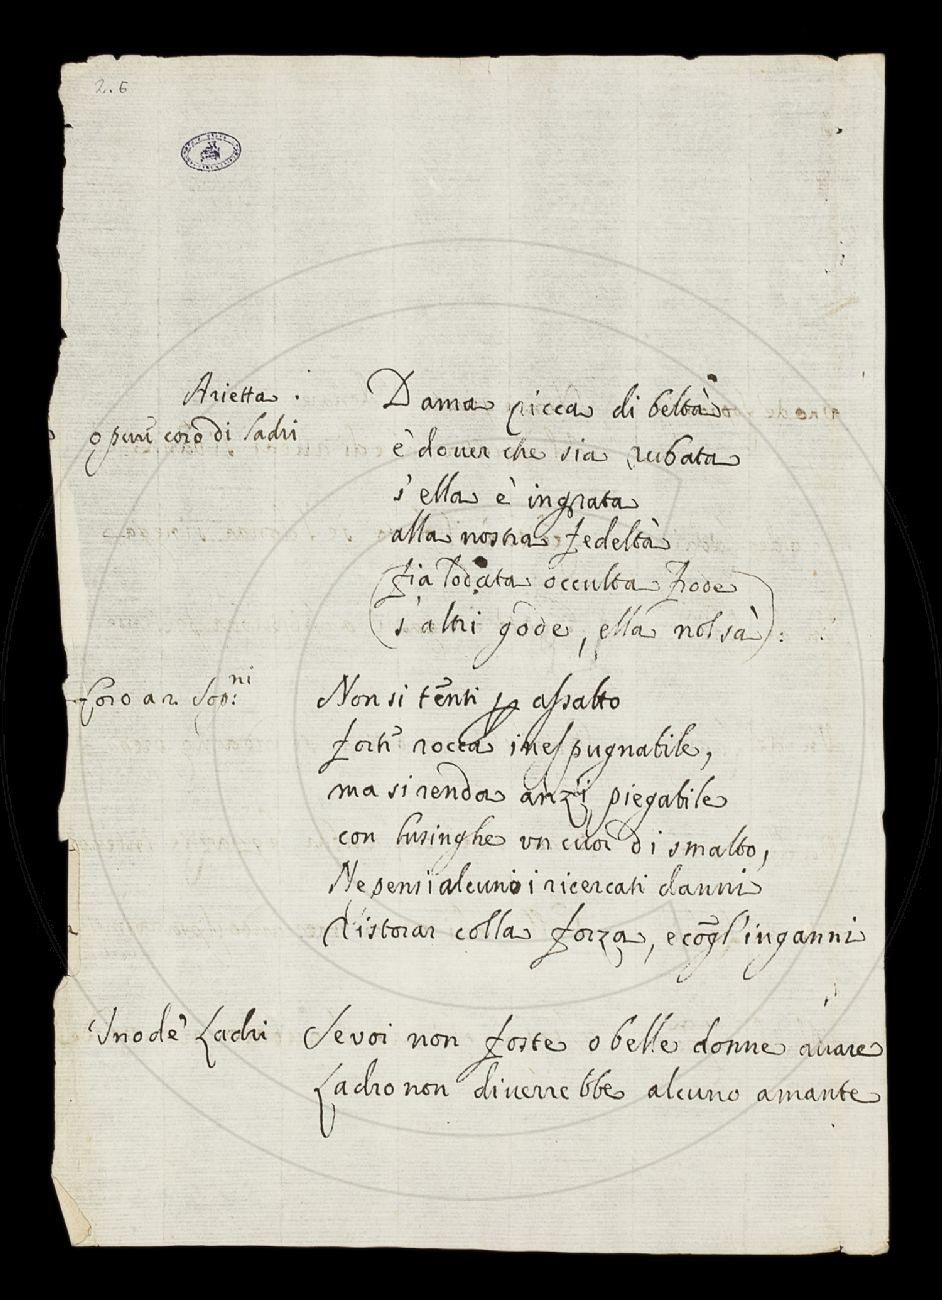 2. 6
Arietta .
o pure coro di Ladri
Dama ricca di beltà
è douer che sia rubata
s'ella è ingrata
alla nostra fedeltà
(sia lodata occulta frode
s'altri gode, ella nol sà) :
Coro a 2. Sop:ni
Non si tenti p assalto
forte rocca inespugnabile,
ma si renda anzi piegabile
con lusinghe un cuor di smalto,
Ne pensi alcuno i ricercati danni
Ristorar colla forza, e cogl'inganni
Uno de' Ladri
Se voi non foste o belle donne auare
Ladro non diuerrebbe alcuno amante